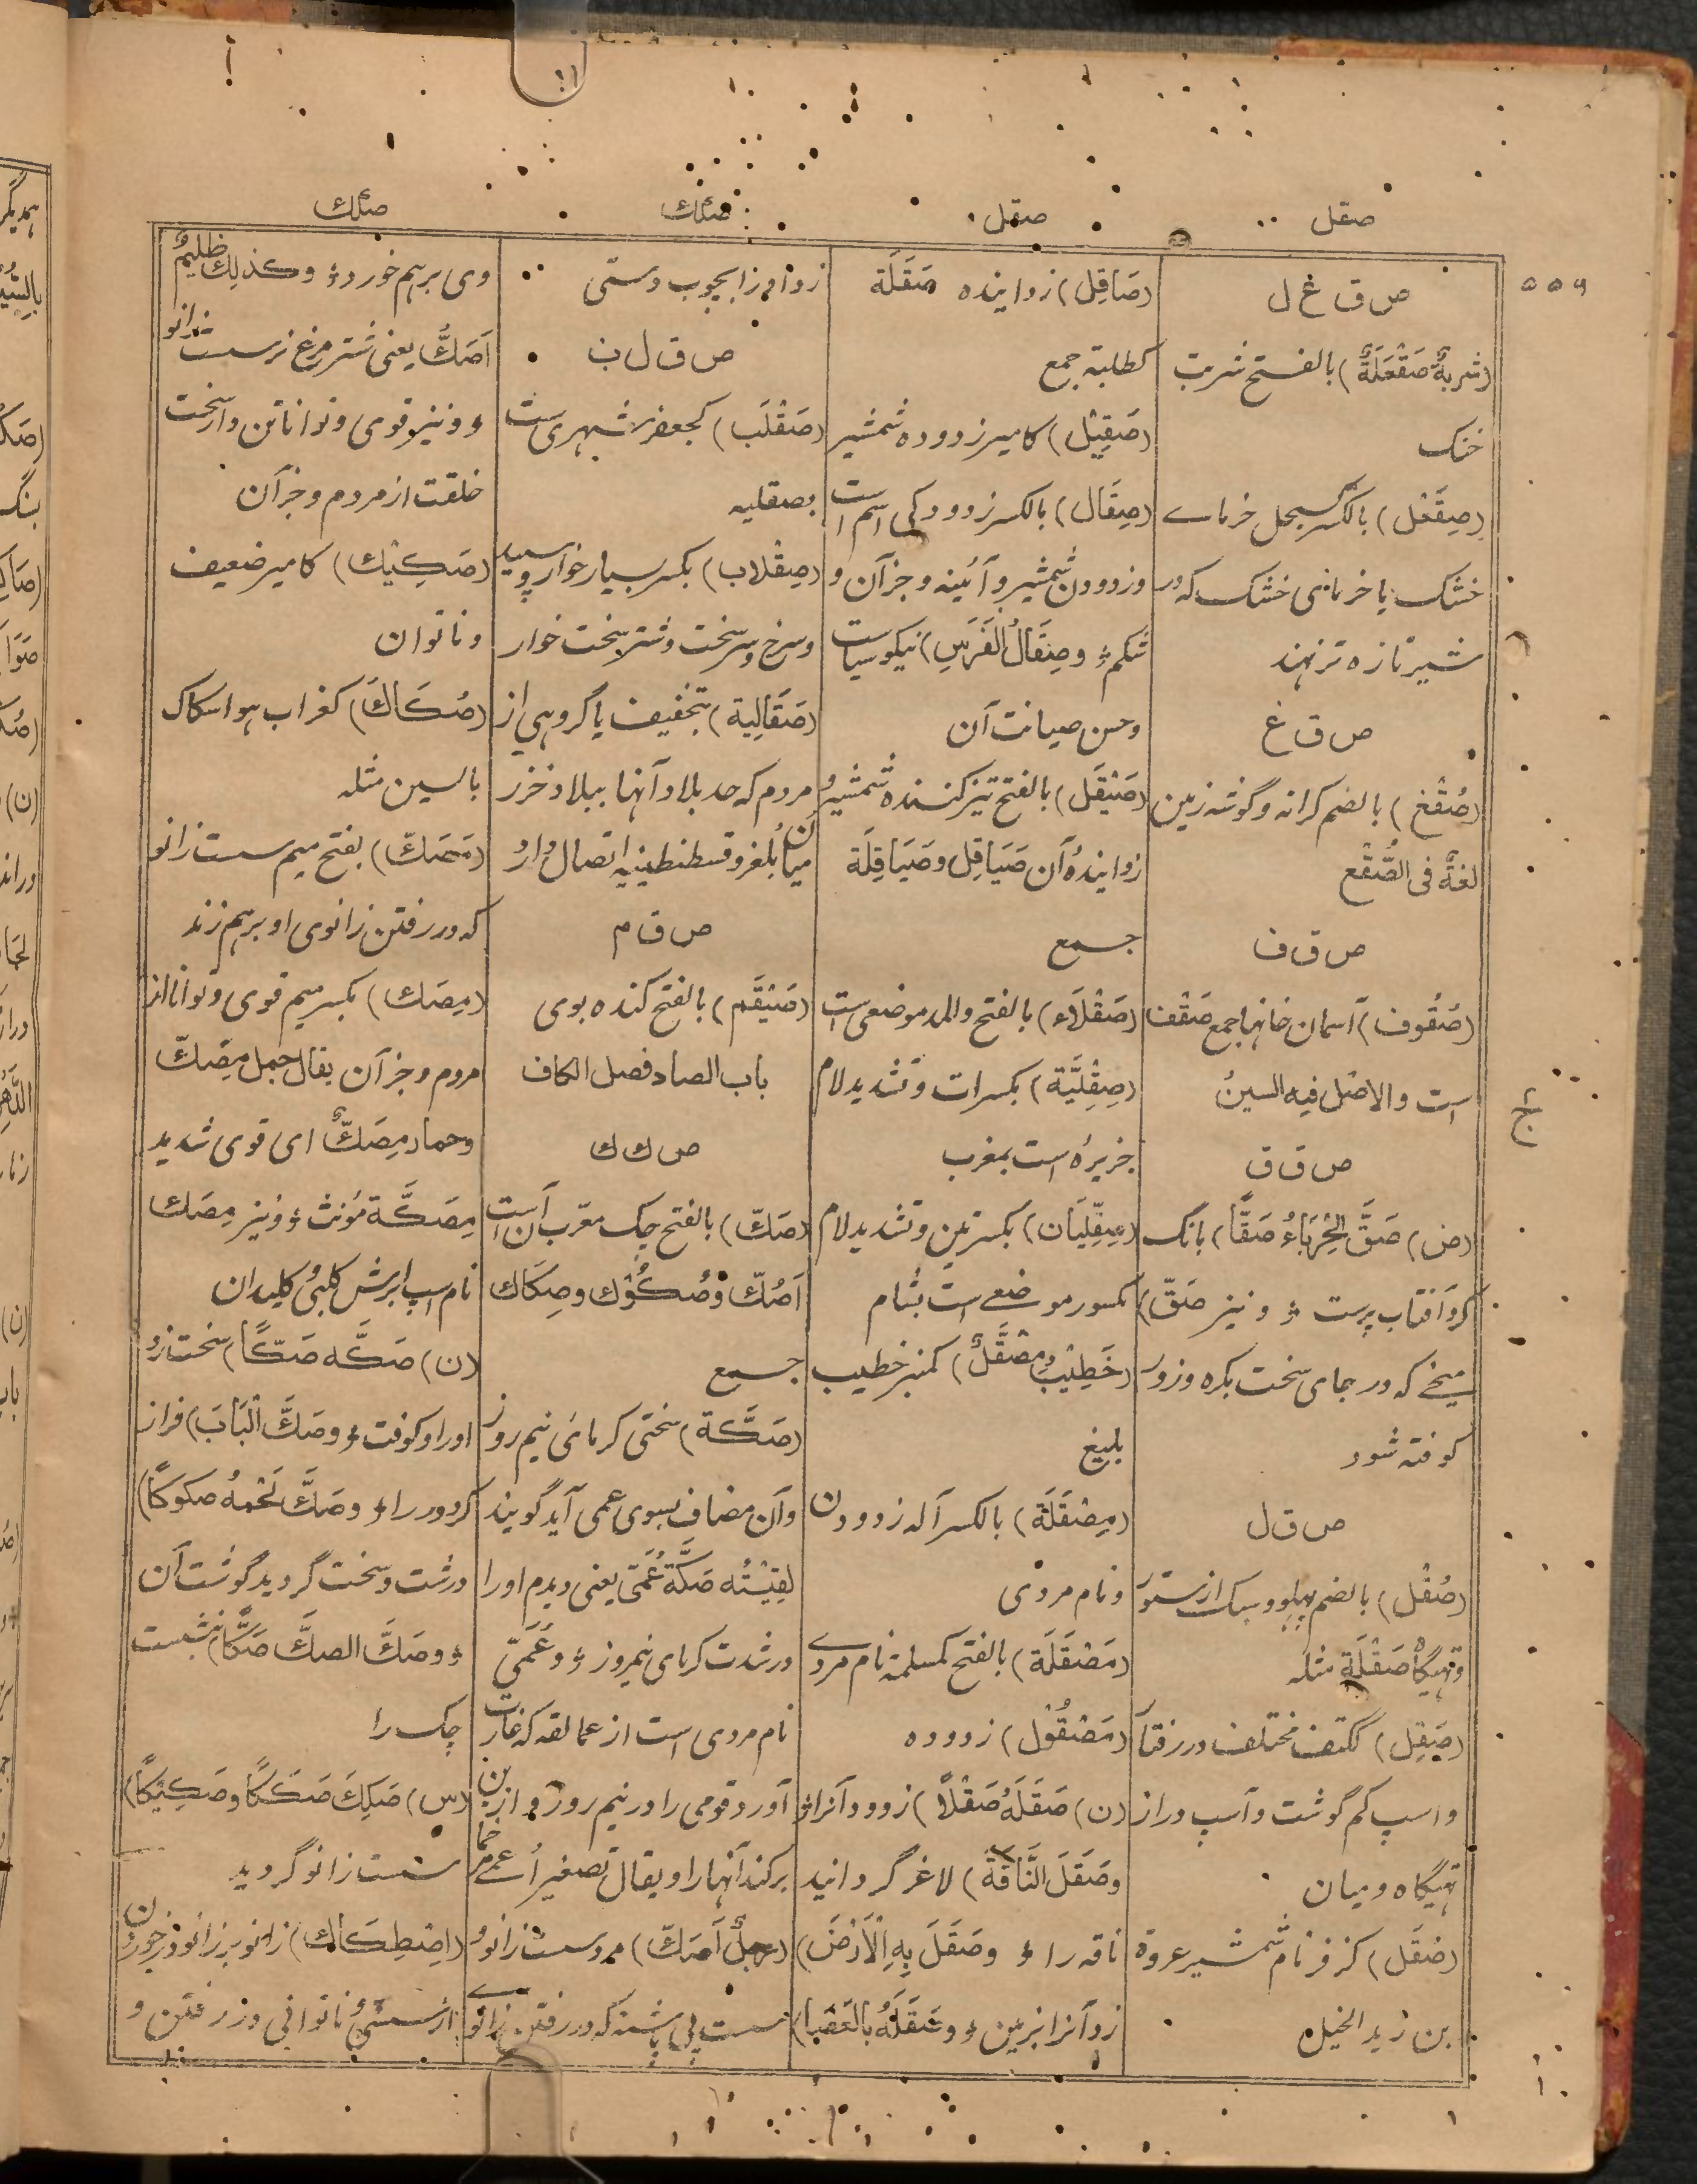 صقل
صقل
صكك
صكك
۵۵۹
ص ق غ ل
(شربةٌ صَقْعَلَةٌ) بالفـتح شربت
خنک
(صِقَعْل) بالکسر سبحل خرماے
خشک یا خرمای خشک که در
شیر تازه تر نهند
ص ق غ
(صُقْغ) بالضم کرانه و گوشه زمین
لغةٌ فی الصُّقْع
ص ق ف
(صُقُوف) آسمان خانها جمع صَقْف
است والاصْل فیه السینُ
ص ق ق
(ض) صَقَّ الحِرْبَاءُ صَقًّا) بانگ
کرد آفتاب پرست ؛ و نیز صَقّ)
میخے که در جای سخت بکره و زور
کوفته شود
ص ق ل
(صُقْل) بالضم پهلو و سبک از ستور
و تهیگاه صَقْلَة مثله
(صَقِل) ککتف مختلف در رفتار
و اسپ کم گوشت و اسپ دراز
تهیگاه و میان
(صُقَل) کزفر نام شمشیر عروة
بن زید الخیل
(صَاقِل) زواینده صَقَلَة
کطلبة جمع
(صَقِیْل) کامیر زدوده شمشیر
(صِقَال) بالکسر زدودکی اسم است
و زدودن شمشیر و آئینه و جز آن و
شکم ؛ و صِقَالُ الفَرَس) نیکو سیاست
و حسن صیانت آن
(صَیْقَل) بالفتح تیز کننده شمشیر و
زوایندهٔ آن صَیَاقِل و صَیَاقِلَة
جــمع
(صَقْلَاء) بالفتح والمد موضعی است
(صِقِلِّیَّة) بکسرات و تشدید لام
جزیره است بمغرب
(صِقِلِّیَان) بکسرتین و تشدید لام
مکسور موضعے است بشام
(خَطِیْبٌ مِصْقَلٌ) کمنبر خطیب
بلیغ
(مِصْقَلَة) بالکسر آله زدودن
و نام مردی
(مَصْقَلَة) بالفتح کمسلمة نام مردے
(مَصْقُوْل) زدوده
(ن) صَقَلَهُ صَقْلًا) زدود آنرا ؛
وصَقَلَ النَّاقَةَ) لاغر گردانید
ناقه را ؛ وصَقَلَ بِهِ الْاَرْضَ)
زد آنرا بزمین ؛ و صَقَلَهُ بالعَصَا)
زد او را بچوب دستی
ص ق ل ب
(صَقْلَب) کجعفر شهری است
بصقلیه
(صِقْلاب) بکسر بسیار خوار و سپید
و سرخ و سر سخت و شتر سخت خوار
(صَقَالِبة) بتخفیف یا گروهی از
مردم که حد بلاد آنها ببلاد خزر
میان بلغر و قسطنطینیه اتصال دارد
ص ق م
(صَیْقَم) بالفتح کنده بوی
باب الصاد فصل الکاف
ص ك ك
(صَكّ) بالفتح چک معرّب آن است
اَصُكّ و صُكُوْك و صِكَاك
جــمع
(صَكَّة) سختی گرمای نیم روز
و آن مضاف بسوی عمی آید گویند
لَقِیْتُه صَكَّةَ عُمَیّ یعنی دیدم او را
در شدت گرمای نیمروز ؛ و عُمَیّ
نام مردی است از عمالقه که غارت
آورد قومی را در نیم روز و ازین
برکند آنها را و یقال تصغیر اَعمے مرخما
(رجلٌ اَصَكّ) مرد سست زانو و
سست پی پاشنه که در رفتن زانو
وی برهم خورد ؛ وكذلك ظلیمٌ
اَصَكُّ یعنی شتر مرغ نر سست زانو
؛ و نیز قوی و توانا تن و استخت
خلقت از مردم و جز آن
(صَكِیْك) کامیر ضعیف
و ناتوان
(صُكَاك) کغراب هوا سکاک
بالسین مثله
(مَصَكّ) بفتح میم سست زانو
که در رفتن زانوی او برهم زند
(مِصَكّ) بکسر میم قوی و توانا از
مردم و جز آن یقال جمل مِصَكّ
وحمار مِصَكٌّ ای قوی شدید
مِصَكَّة مؤنث ؛ و نیز مِصَك
نام اسپ ابرش کلبی کلیدان
(ن) صَكَّه صَكًّا) سخت زد
او را و کوفت ؛ وصَكَّ الْبَابَ) فراز
کرد در را ؛ وصَكَّ لَحْمُهُ صكوكًا)
درشت و سخت گردید گوشت آن
؛ وصَكَّ الصكَّ صَكًّا) نبشت
چک را
(س) صَكِكَ صَكَكًا وصَكِیْكًا)
سست زانو گردید
(اِصْطِكَاك) زانو بر زانو خوردن
از سستی و ناتوانی در رفتن و